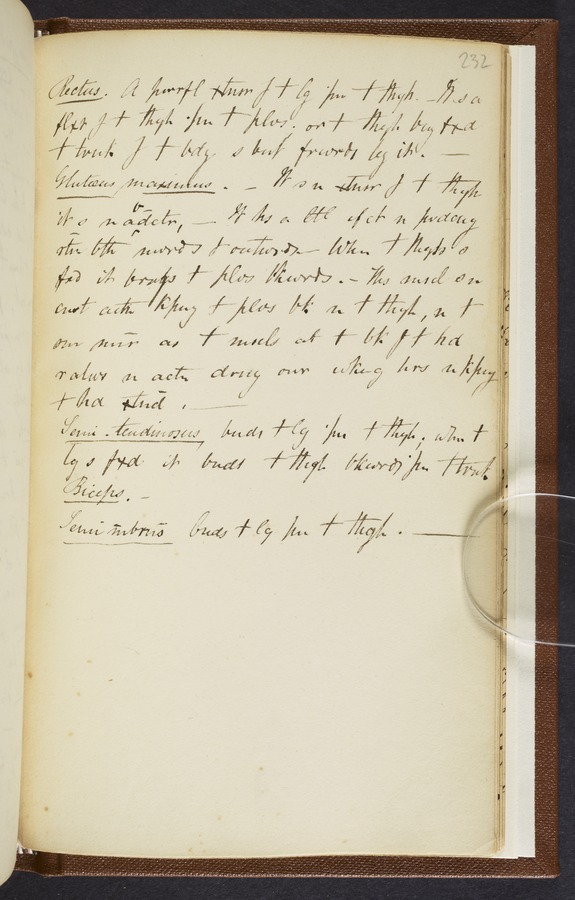 232
Rectus. A powrfl xtnsr f t lg 'pn t thgh. _ It s a
flxr f t thgh 'pn t plvs; or t thgh bng fxd
t trnk f t bdy s bnt frwrds by it. —
Glutæus maximus. — It s n xtnsr f t thgh
it s n abdctr, — It hs a ttl efct n prdcng
rtn bth nwrds & outwrds — Whn t thghs s
fxd it brngs t plvs bkwrds. — Ths muscl s n
cnst actn kpng t plvs bk n t thgh, n t
sm mnr as t muscls at t bk f t hd
r alws n actn drng our wkng hrs n kpng
t hd xtnd. —
Semi-tendinosus bnds t lg 'pn t thgh; whn t
lg s fxd it bnds t thgh bkwrds 'pn t trnk
Biceps. —
Semi mbrns bnds t lg pn t thgh. —